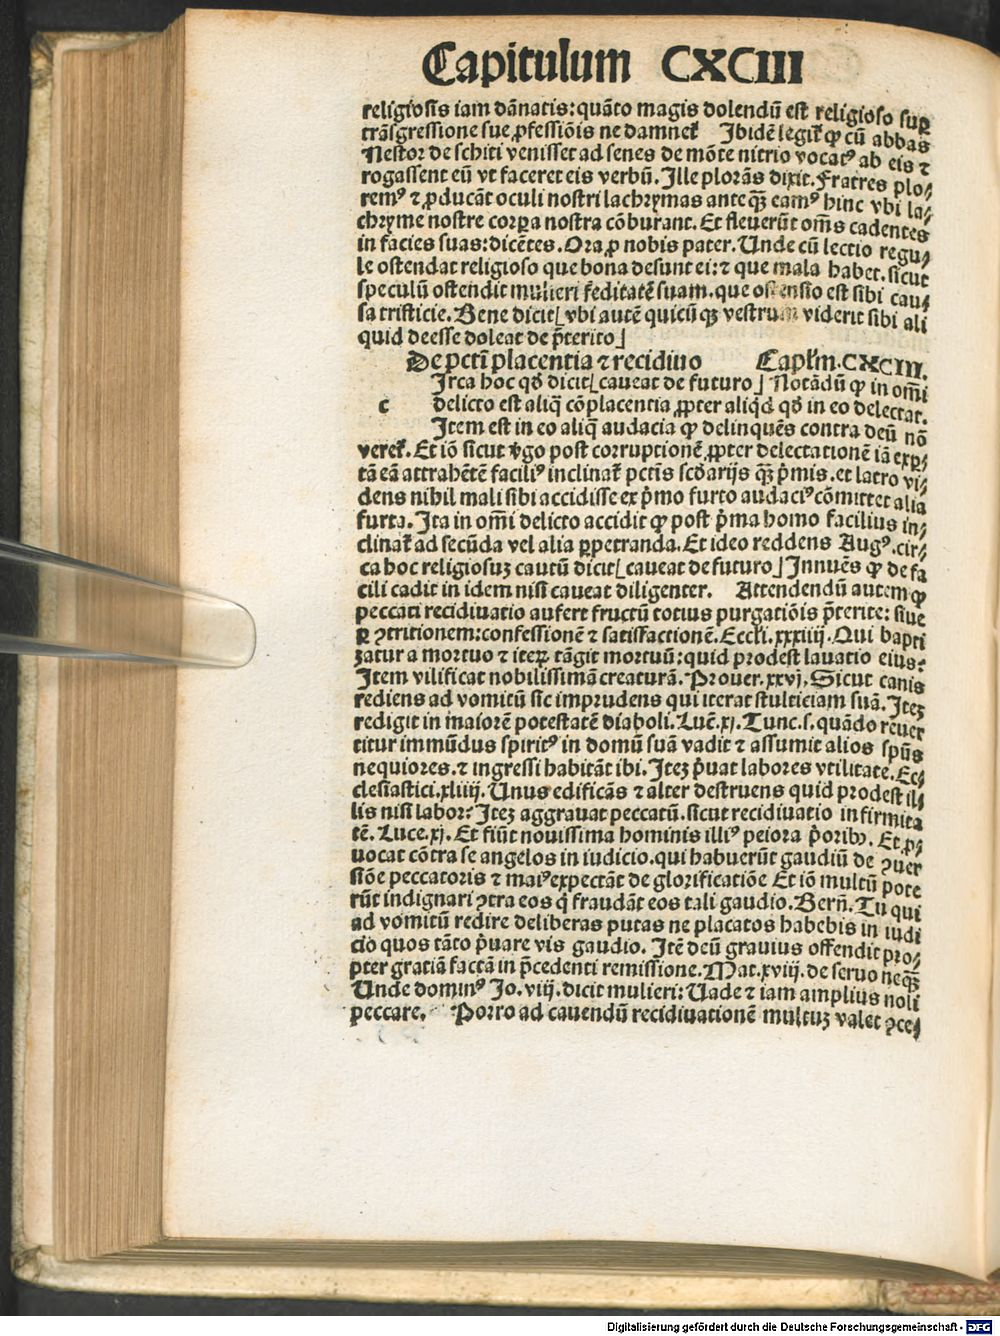 Capitulum CXCIII
religiosis iam dānatis: quāto magis dolendū est religioso suꝑ
trāsgressione sue ꝓfessiōis ne damnet᷑ Ibidē legit᷑ ꝙ cū abbas
Nestor de schiti venisset ad senes de mōte nitrio vocatꝰ ab eis ⁊
rogassent eū vt faceret eis verbū. Ille plorās dixit. Fratres plo⸗
remꝰ ⁊ ꝓducāt oculi nostri lachrymas ante qꝫ̄ eamꝰ hinc vbi la⸗
chryme nostre corꝑa nostra cōburant. Et fleuerūt om̄s cadentes
in facies suas: dicētes. Ora ꝓ nobis pater. Unde cū lectio regu⸗
le ostendat religioso que bona desunt ei: ⁊ que mala habet. sicut
speculū ostendit mulieri feditatē suam. que ostensio est sibi cau⸗
sa tristicie. Bene dicit⌊ vbi autē quicū qꝫ vestrum viderit sibi ali
quid deesse doleat de p̄terito⌋
De pctī placentia ⁊ recidiuo Caplm̄. CXCIII.
c
Irca hoc qď dicit⌊ caueat de futuro⌋ Notādū ꝙ in om̄i
delicto est aliq̄ cōplacentia ꝓpter aliqd̄ qď in eo delectat.
Item est in eo aliq̄ audacia ꝙ delinquēs contra deū nō
veret᷑. Et iō sicut v̓go post corruptionē ꝓpter delectationē iā exꝑ⸗
tā eā attrahētē faciliꝰ inclinat᷑ pctīs scďarijs qꝫ̄ p̓mis. et latro vi⸗
dens nihil mali sibi accidisse ex p̓mo furto audaciꝰ cōmittet alia
furta. Ita in om̄i delicto accidit ꝙ post p̓ma homo facilius in⸗
clinat᷑ ad secūda vel alia ꝑpetranda. Et ideo reddens Augꝰ. cir⸗
ca hoc religiosuꝫ cautū dicit⌊ caueat de futuro⌋ Innuēs ꝙ de fa
cili cadit in idem nisi caueat diligenter. Attendendū autem ꝙ
peccati recidiuatio aufert fructū totius purgatiōis p̄terite: siue
ꝑ ꝯtritionem: confessionē ⁊ satisfactionē. Eccl̓i. xxxiiij. Qui bapti
zatur a mortuo ⁊ iteꝝ tāgit mortuū: quid prodest lauatio eius?
Item vilificat nobilissimā creaturā. Prouer. xxvj. Sicut canis
rediens ad vomitū sic imprudens qui iterat stulticiam suā. Iteꝫ
redigit in maiorē potestatē diaboli. Luē. xj. Tunc. s. quādo reuer
titur immūdus spiritꝰ in domū suā vadit ⁊ assumit alios spūs
nequiores. ⁊ ingressi habitāt ibi. Iteꝫ p̓uat labores vtilitate. Ec⸗
clesiastici. xliiij. Unus edificās ⁊ alter destruens quid prodest il⸗
lis nisi labor? Iteꝫ aggrauat peccatū. sicut recidiuatio infirmita
tē. Luce. xj. Et fiūt nouissima hominis illiꝰ peiora p̓oribꝰ. Et ꝓ⸗
uocat cōtra se angelos in iudicio. qui habuerūt gaudiū de ꝯuer
siōe peccatoris ⁊ maiꝰ expectāt de glorificatiōe Et iō multū pote
rūt indignari ꝯtra eos q̓ fraudāt eos tali gaudio. Bern̄. Tu qui
ad vomitū redire deliberas putas ne placatos habebis in iudi
cio quos tāto p̓uare vis gaudio. Itē deū grauius offendit pro⸗
pter gratiā factā in p̄cedenti remissione. Mat. xviij. de seruo neqꝫ̄
Unde dominꝰ Io. viij. dicit mulieri: Uade ⁊ iam amplius noli
peccare. Porro ad cauendū recidiuationē multuꝫ valet ꝯce⸗
Digitalisierung gefördert durch die Deutsche Forschungsgemeinschaft - DFG